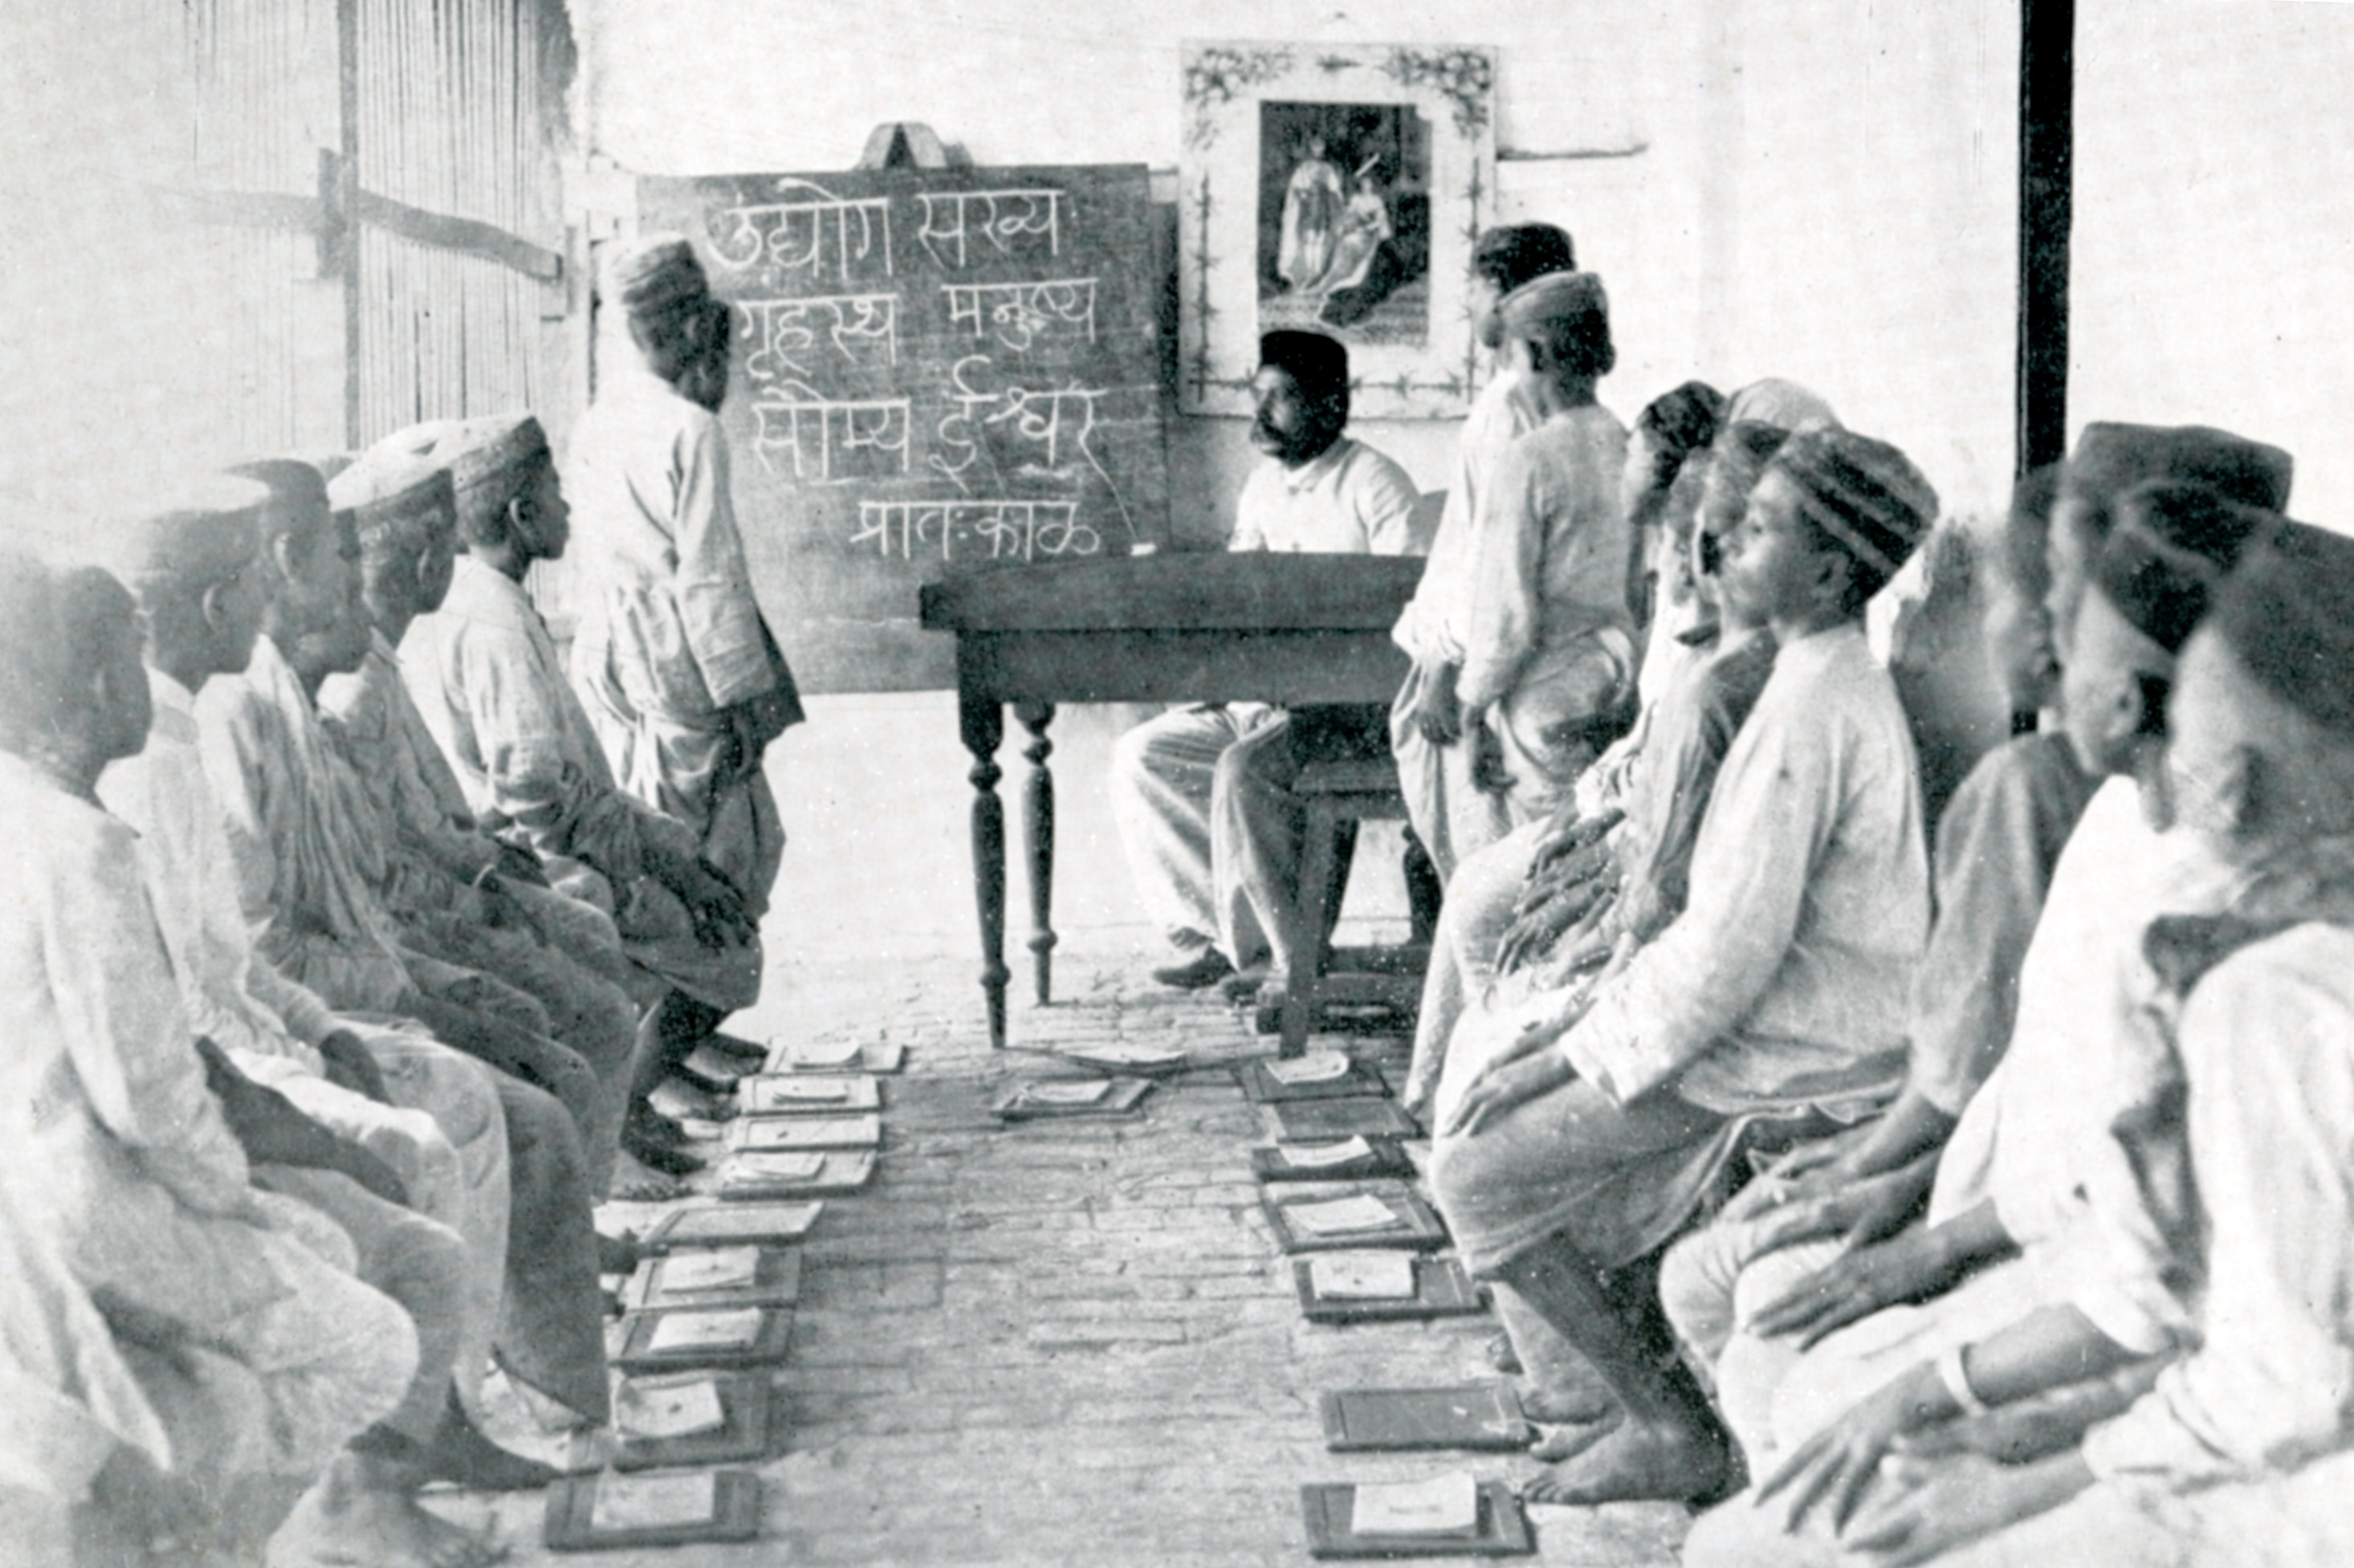 उद्योग सख्य
गृहस्थ मनुष्य
सौम्य ईश्वर
प्रातःकाळ